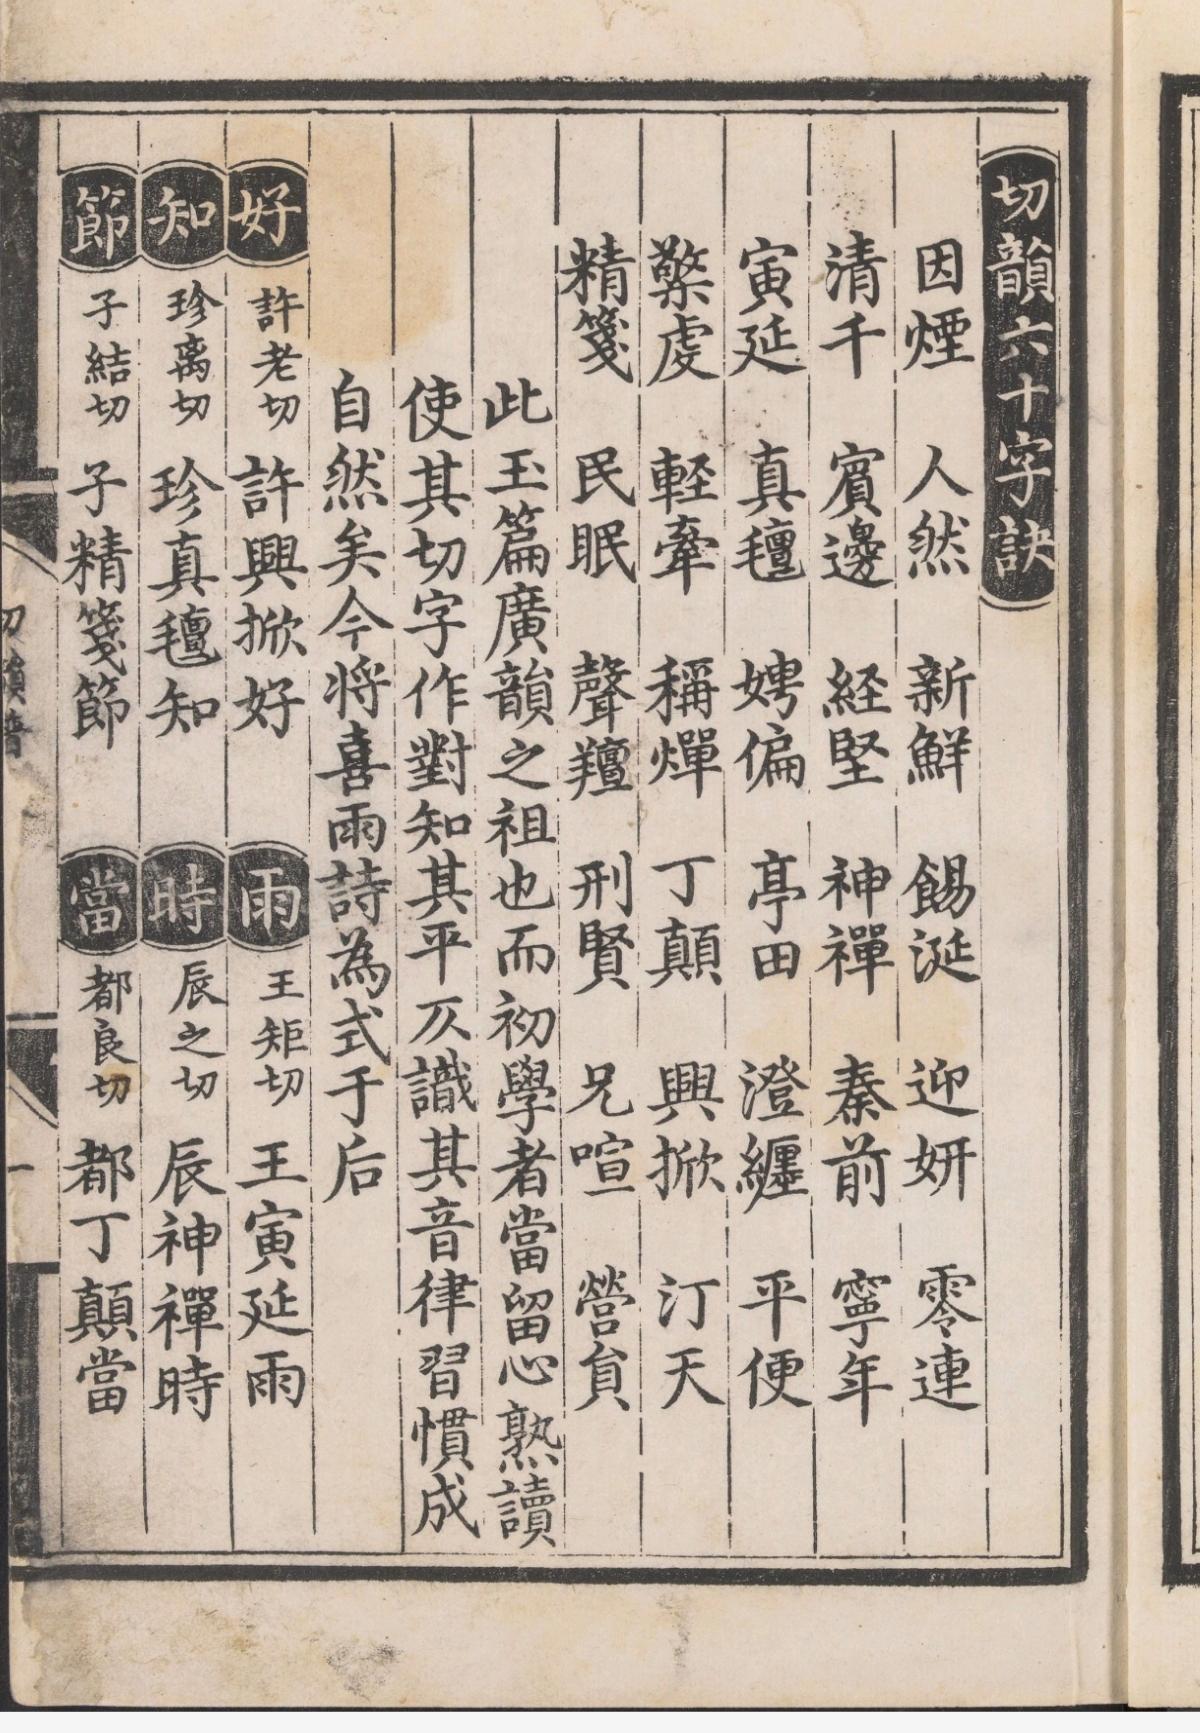 切韻六十字訣
因煙 人然 新鮮 餳涎 迎妍 零連
清千 賓邊 経堅 神禪 秦前 寧年
寅延 真氊 娉偏 亭田 澄纏 平便
檠虔 軽牽 稱燀 丁顛 興掀 汀天
精箋 民眠 聲羶 刑賢 兄喧 營負
此玉篇廣韻之祖也而初學者當留心熟讀
使其切字作對知其平仄識其音律習慣成
自然矣今将喜雨詩為式于后
好 許老切 許興掀好 雨 王矩切 王寅延雨
知 珍离切 珍真氊知 時 辰之切 辰神禪時
節 子結切 子精箋節 當 都良切 都丁顛當